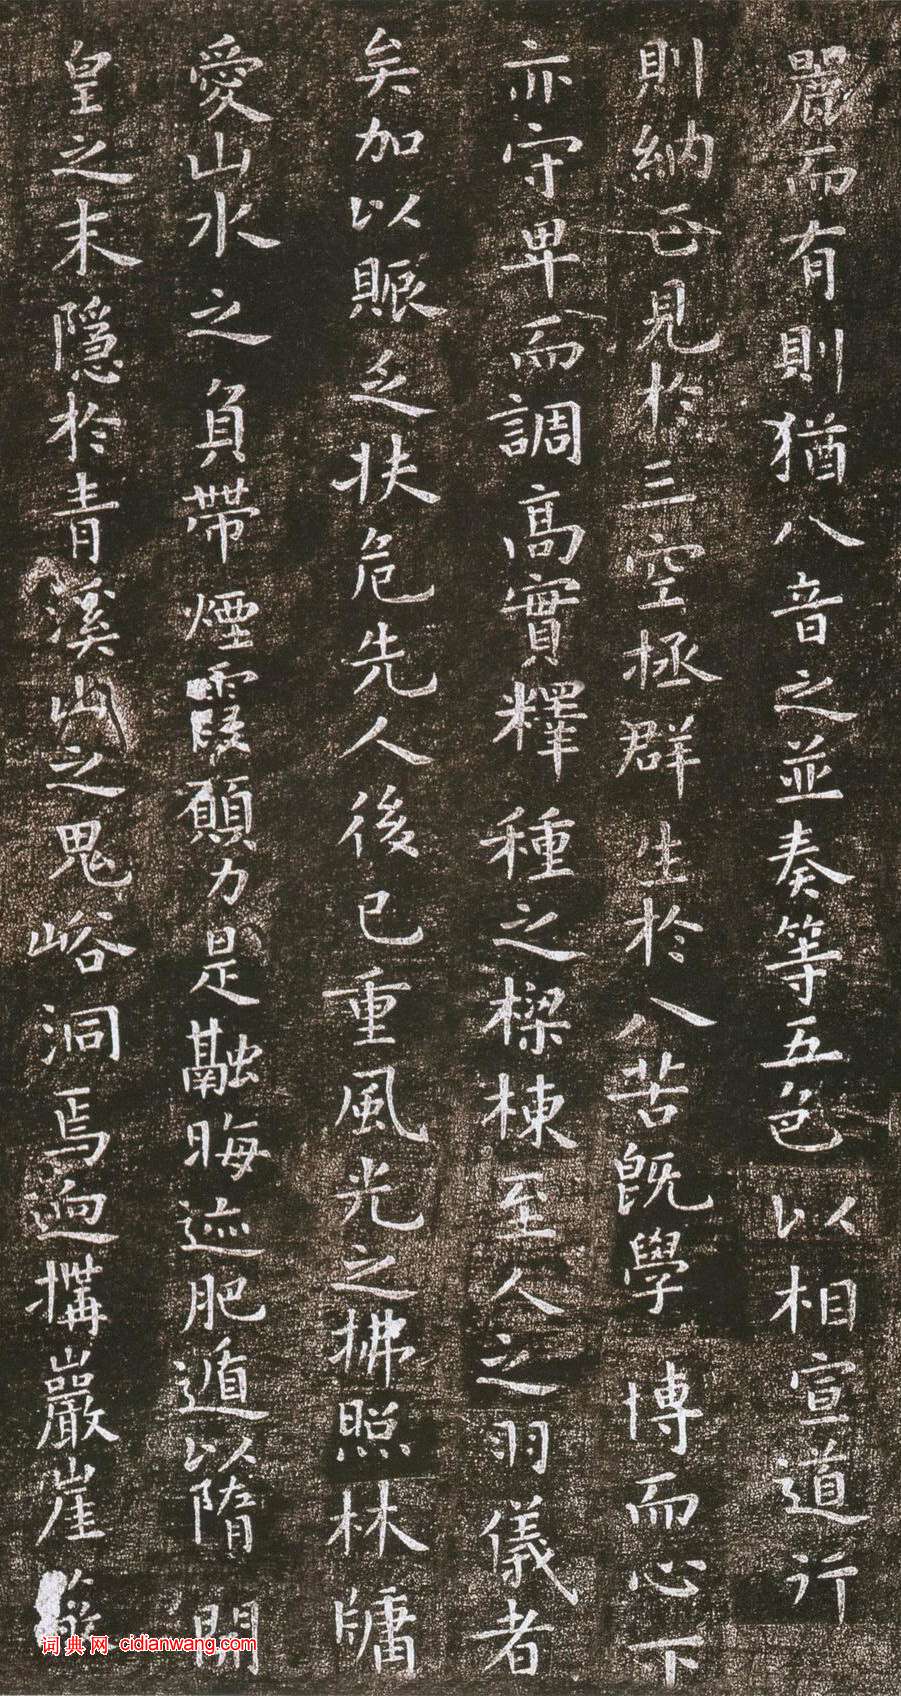 麗而有則猶八音之並奏等五色以相宣道行
則納正見於三空拯群生於八苦既學博而心下
亦守卑而調高實釋種之樑棟至人之羽儀者
矣加以賑乏扶危先人後已重風光之拂照林牖
愛山水之負帶煙霞願力是融晦迹肥遁以隋開
皇之末隱於青溪山之鬼峪洞焉迥構巖崖
词典网 cidianwang.com